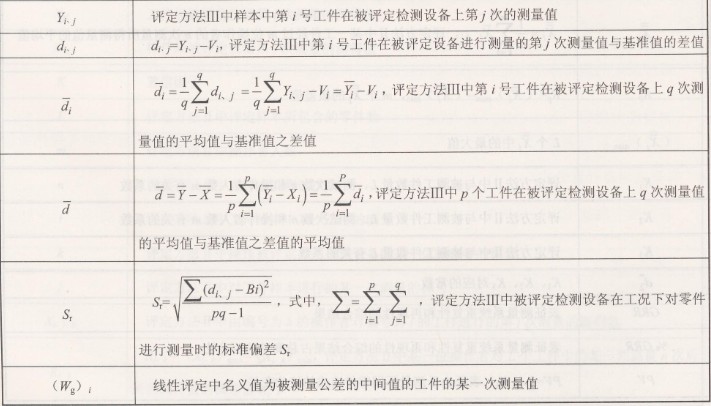 Y_{i、j} 评定方法III中样本中第 i 号工件在被评定检测设备上第 j 次的测量值
d_{i、j} d_{i、j}=Y_{i、j}−V_i, 评定方法III中第 i 号工件在被评定设备进行测量的第 j 次测量值与基准值的差值
\overline{d}_i \overline{d}_i=\frac{1}{q}\sum_{j=1}^{q}d_{i、j}=\frac{1}{q}\sum_{j=1}^{q}Y_{i、j}−V_i=\overline{Y}_i−V_i，评定方法III中第 i 号工件在被评定检测设备上 q 次测
量值的平均值与基准值之差值
\overline{d} \overline{d}=\overline{Y}−\overline{X}=\frac{1}{p}\sum_{i=1}^{p}(\overline{Y}_i−X_i)=\frac{1}{p}\sum_{i=1}^{P}\overline{d}_i,评定方法III中 p 个工件在被评定检测设备上 q 次测量值
的平均值与基准值之差值的平均值
S_r S_r=\sqrt{\frac{\sum(d_{i、j}−Bi)^2}{pq−1}}，式中，\sum=\sum_{i=1}^{p}\sum_{j=1}^{q}，评定方法III中被评定检测设备在工况下对零件
进行测量时的标准偏差 S_r
(W_g)_i 线性评定中名义值为被测量公差的中间值的工件的某一次测量值